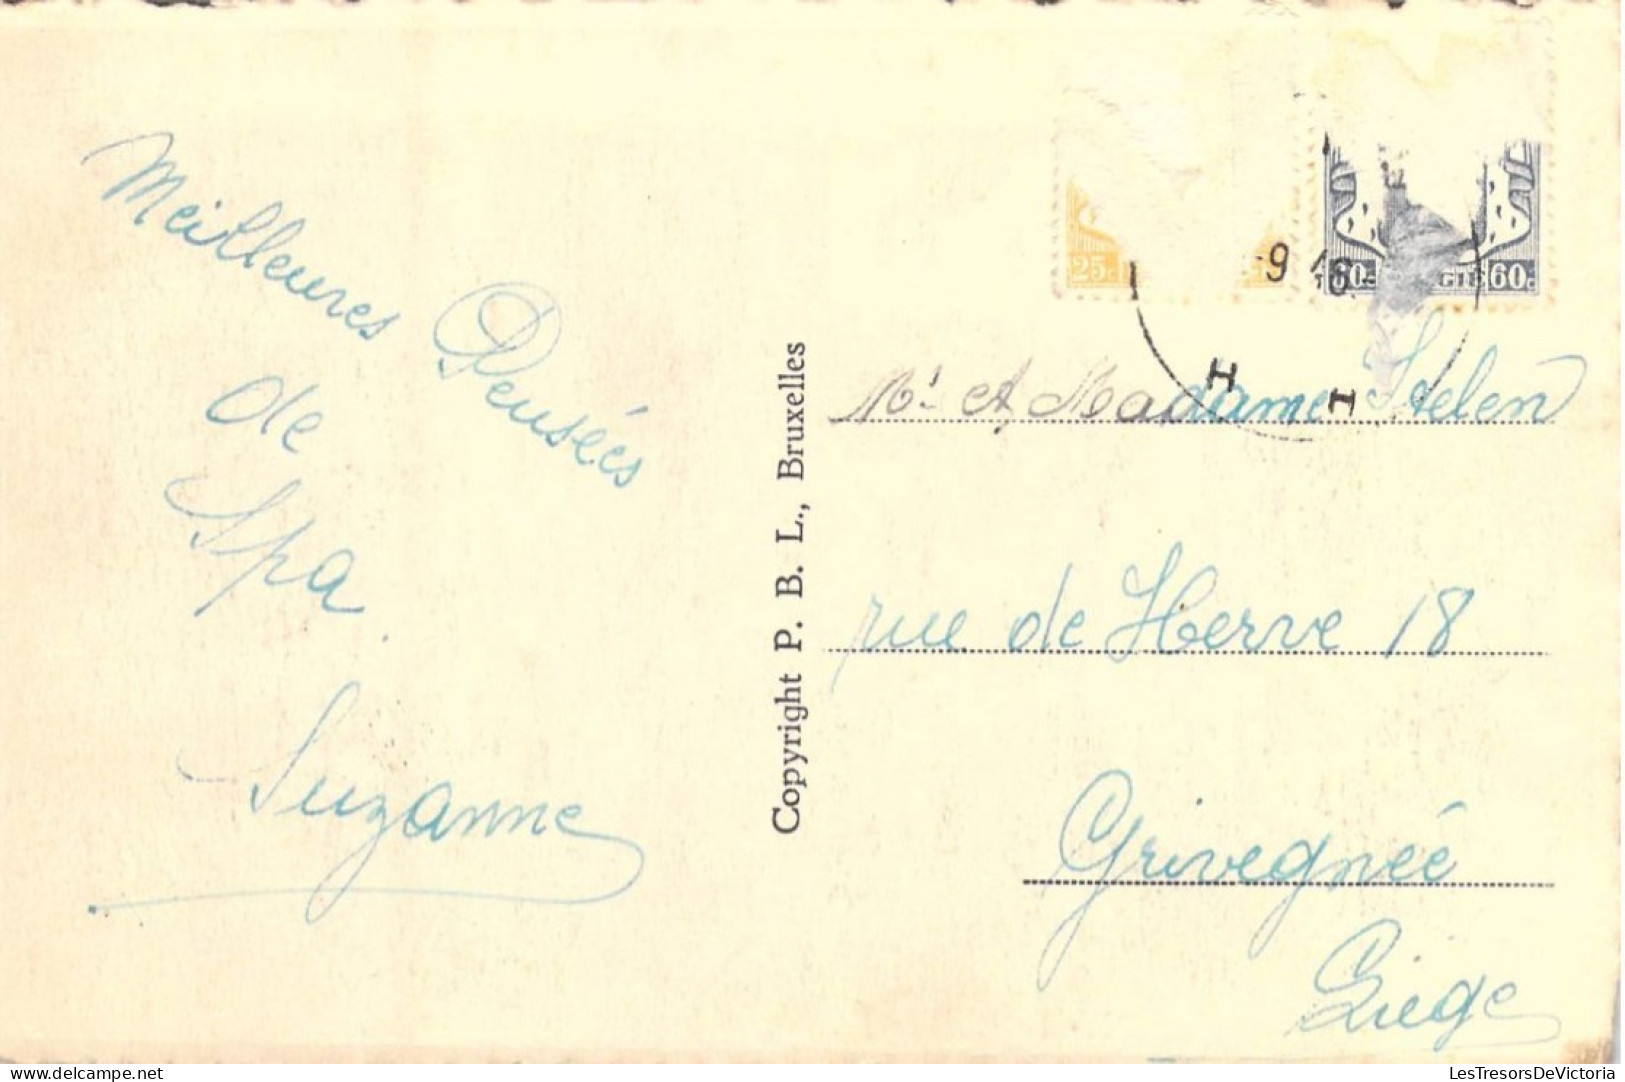 Meilleures Pensées
de
Spa.
Suzanne
Copyright P. B. L., Bruxelles
25c
60c GIË 60c
9
H H
Mr et Madame Stelen
rue de Herve 18
Grivegnée
Liege
LesTresorsDeVictoria